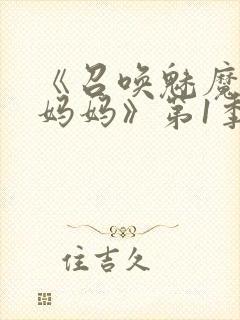 《召唤魅魔
妈妈》第1季
住吉久